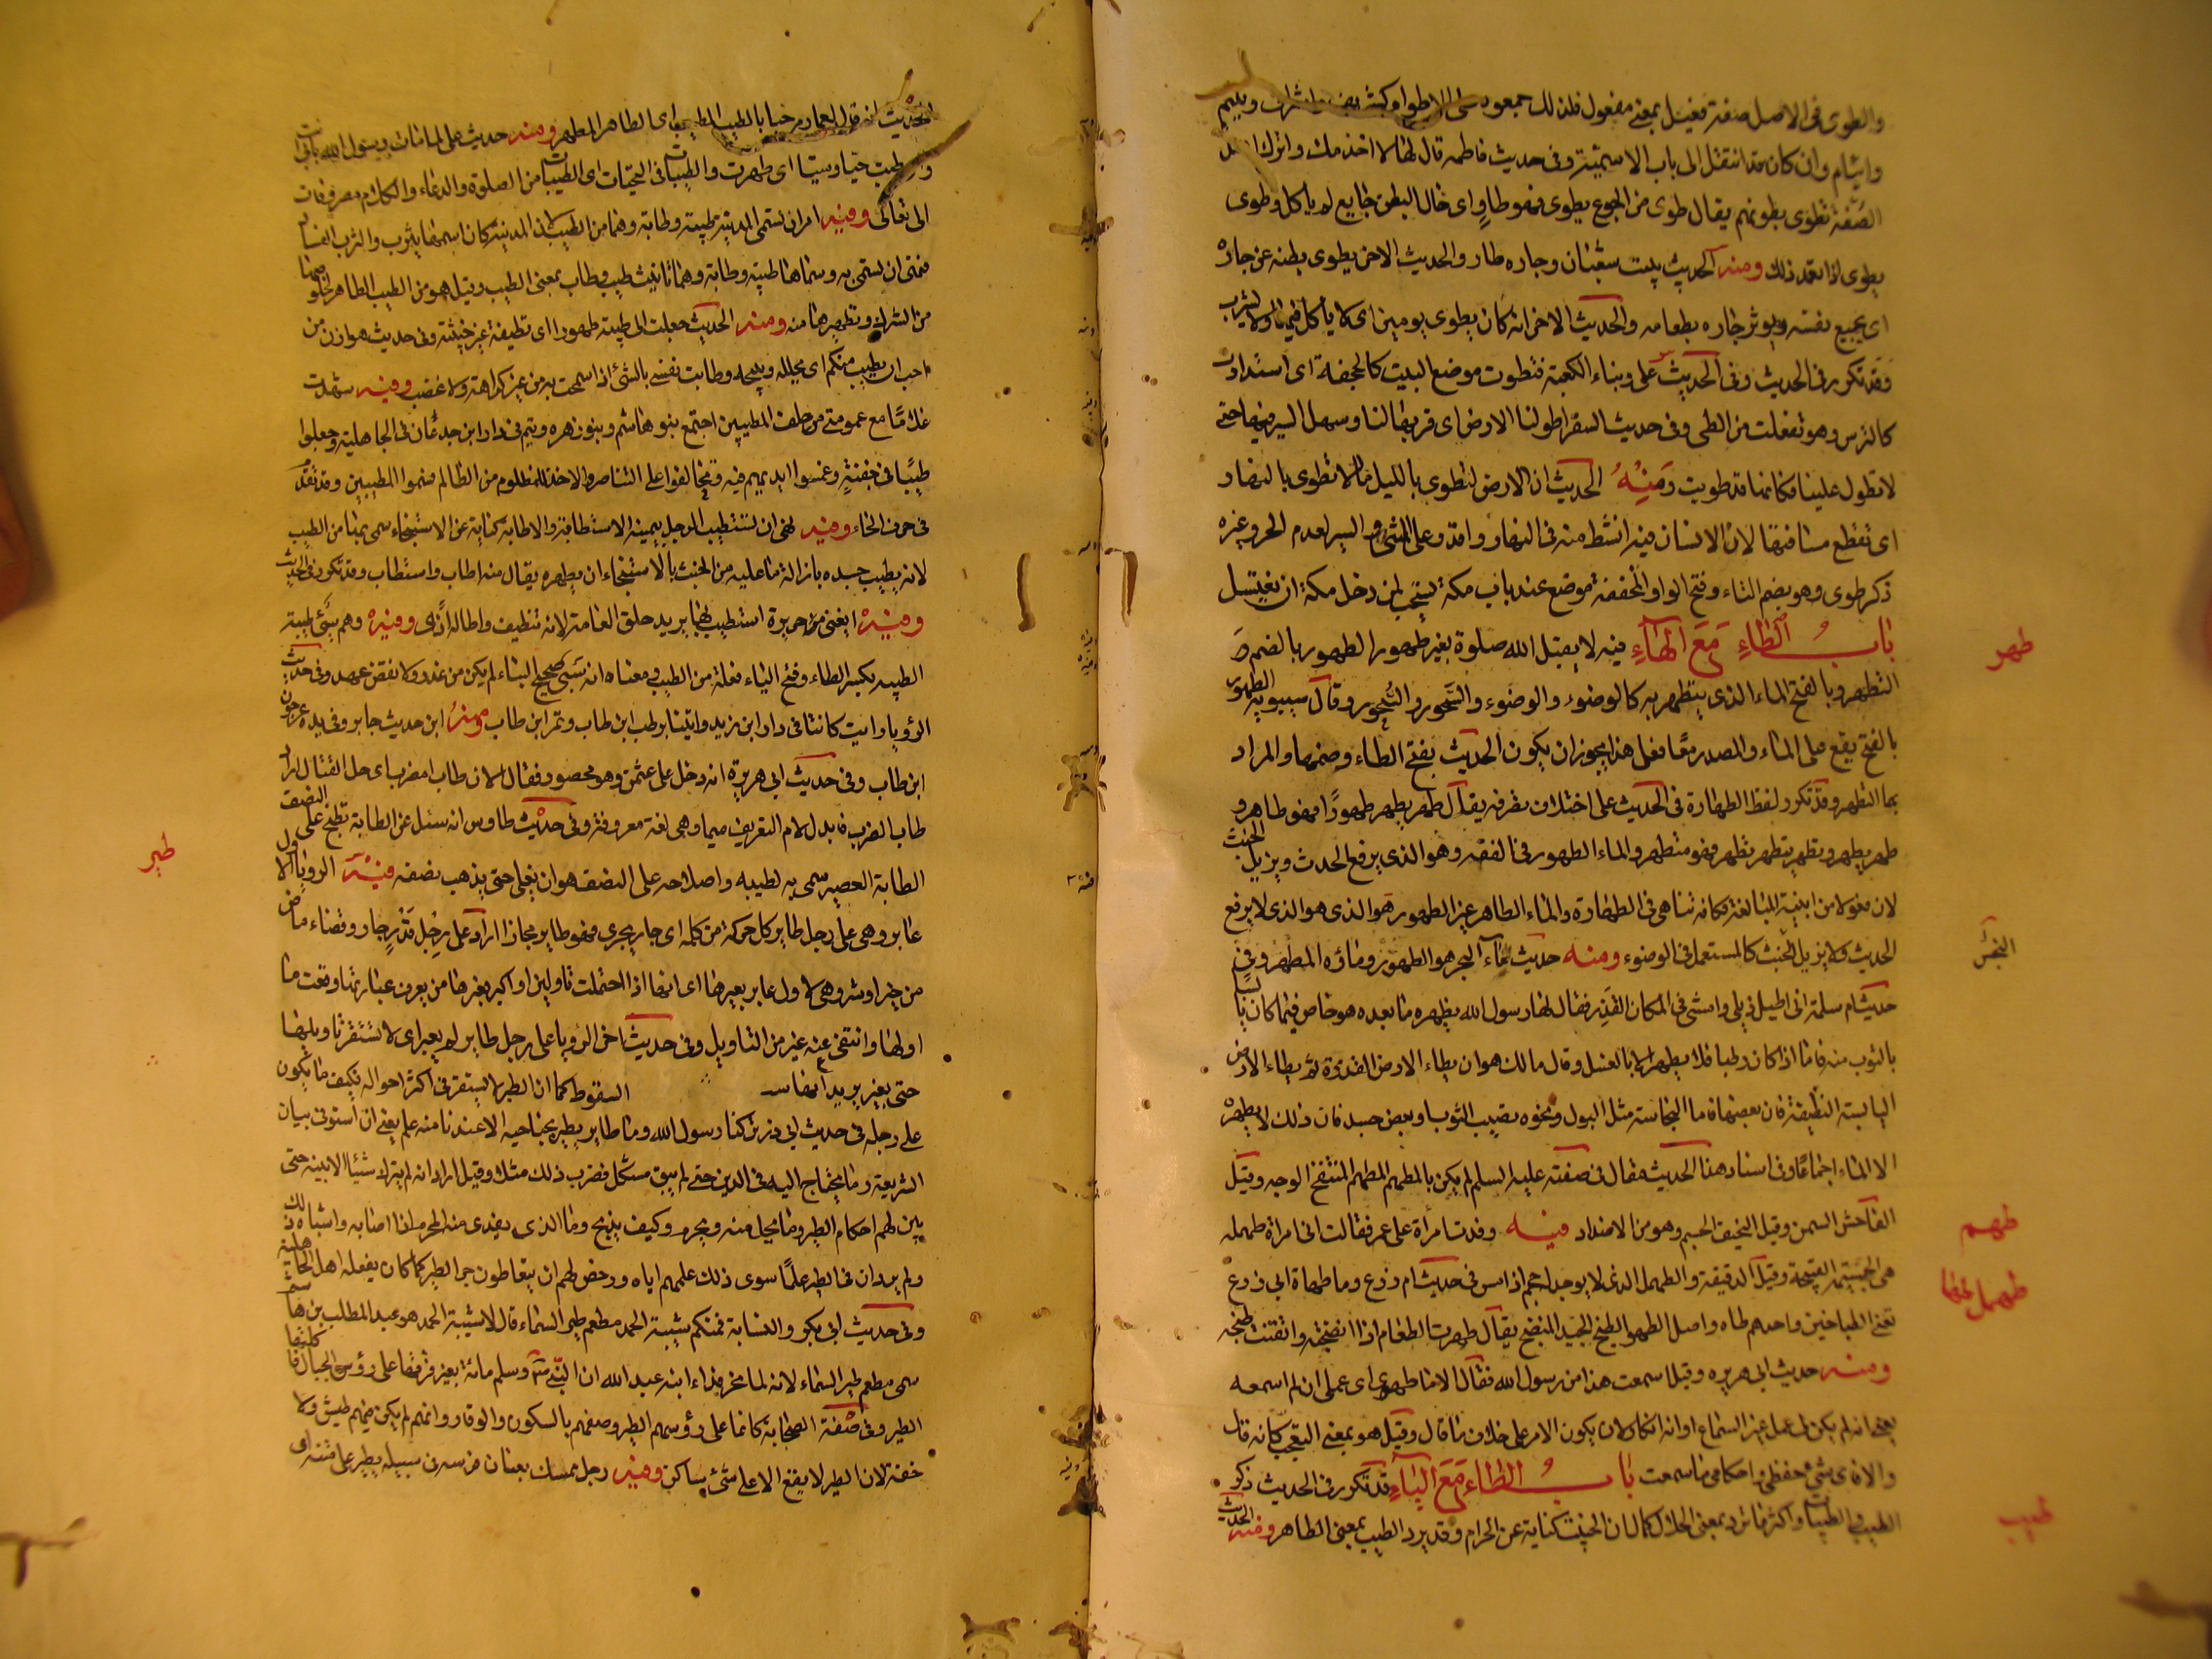 والطوى فى الاصل صفة فعيل بمعنى مفعول فلذلك جمعوه على الاطواء كشريف واشراف ويتيم
وايتام وان كان قد انتقل الى باب الاسمية وفى حديث فاطمه قال لها لا اخدمك واترك اهل
الصفة تطوى بطونهم يقال طوى من الجوع يطوى فهو طاوٍ اى خالى البطن جايع لم ياكل وطوى
يطوى اذا تعمد ذلك ومنه الحديث يبيت شبعان وجاره طاو والحديث الاخر يطوى بطنه عن جاره
اى يجيع نفسه ويوثر جاره بطعامه والحديث الاخر انه كان يطوى يومين اى لا ياكل فيهما ولا يشرب
وقد تكرر فى الحديث وفى الحديث على وبناء الكعبة فتطوت موضع البيت كالحجفة اى استدارت
كالترس وهو تفعلت من الطى وفى حديث السفر اطو لنا الارض اى قربها لنا وسهل السير فيها حتى
لا تطول علينا فكانها قد طويت ومنه الحديث ان الارض لتطوى بالليل ما لا تطوى بالنهار
اى تقطع مسافتها لان الانسان فيه انشط منه فى النهار واقدر على المشى والسير لعدم الحر وغيره
ذكر طوى وهو بضم الثاء وفتح الواو المخففة موضع عند باب مكة يستحب لمن دخل مكة ان يغتسل
باب الطاء مع الهاء فيه لا يقبل الله صلوة بغير طهور الطهور بالضم
طهر
التطهر وبالفتح الماء الذى يتطهر به كالوضوء والوضوء والسَّحور والسُّحور وقال سيبويه الطهور
بالفتح يقع على الماء والمصدر معًا فعلى هذا يجوز ان يكون الحديث بفتح الطاء وضمها والمراد
بها التطهر وقد تكرر لفظ الطهارة فى الحديث على اختلاف تصرفه يقال طهر يطهر طهورًا فهو طاهر و
طهر يطهر وتطهر يتطهر تطهر فهو متطهر والماء الطهور فى الفقه وهو الذى يرفع الحدث ويزيل الخبث
لان فعولا من ابنية المبالغة فكانه تناهى فى الطهارة والماء الطاهر غير الطهور هو الذى هو الذى لا يرفع
الحدث ولا يزيل الخبث كالمستعمل فى الوضوء ومنه حديث ماء البحر هو الطهور وماؤه المطهر وفى
النجس
حديث ام سلمة انى اطيل ذيلى وامشى فى المكان القذر فقال لها رسول الله يطهره ما بعده هو خاص فيما كان يابسا
بالثوب منه فاما اذا كان رطبا فلا يطهر الا بالغسل وقال مالك هو ان يطاء الارض القذرة ثم يطاء الارض
اليابسة النظيفة فان بعضها فاما النجاسة مثل البول ونحوه يصيب الثوب او بعض جسد فان ذلك لا يطهره
الا الماء اجماعًا وفى اسناد هذا الحديث مقال فى صفته عليه السلم لم يكن بالمطهم المطهم المنتفخ الوجه وقيل
الفاحش السمن وقيل النحيف الجسم وهو من الاضداد فيه وفدت امرأة على عمر فقالت انى امراة طهمله
طهم
هى الجسيمه القبيحة وقيل الدقيقة والطهمل الذى لا يوجد له حجم اذا مس فى حديث ام زرع وما طهاة ابى زرع
طهمل طها
تعنى الطباخين واحدهم طاه واصل الطهو الطبخ الجيد المنضج يقال طهوت الطعام اذا انضجته واتقنت طبخه
ومنه حديث ابى هريره وقيل اسمعت هذا من رسول الله فقال الا ما طهوى اى عملى ان لم اسمعه
يعنى انه لم يكن لى عمل غير السماع او انه انكار لان يكون الامر على خلاف ما قال وقيل هو بمعنى التعجب كانه قال
والا فاى شئ حفظى واحكامى ما سمعت باب الطاء مع الياء قد تكرر فى الحديث ذكر
الطيب والطيبات واكثر ما ترد بمعنى الحلال كما ان الخبيث كناية عن الحرام وقد يرد الطيب بمعنى الطاهر ومنه الحديث
طيب
الحديث انه قال لعمار مرحبا بالطيب المطيب اى الطاهر المطهر ومنه حديث على لما مات رسول الله بابى
طبت حيا وميتا اى طهرت والطيبات فى التحيات اى الطيبات من الصلوة والدعاء والكلام مصروفات
الى الله تعالى وفيه امر ان تسمى المدينة طيبة وطابة وهما من الطيب لان المدينة كان اسمها يثرب والثرب الفساد
فنهى ان يسمى به وسماها طيبة وطابة وهما تانيث طيب وطاب بمعنى الطيب وقيل هو من الطيب الطاهر لخلوصها
من الشرك وتطهيرها منه ومنه الحديث جعلت لى طيبة طهورا اى نظيفة غير خبيثة وفى حديث هوازن من
احب ان يطيب منكم اى يحلله ويبيحه وطابت نفسى بالشئ اذا سمحت به من غير كراهة ولا غضب وفيه شهدت
غلامًا مع عمومتى حلف المطيبين اجتمع بنو هاشم وبنو زهره وتيم فى دار ابن جدعان فى الجاهلية وجعلوا
طيبًا فى جفنةٍ وغمسوا ايديهم فيه وتحالفوا على التناصر والاخذ للمظلوم من الظالم فسموا المطيبين وقد تقدم
فى حرف الحاء وفيه نهى ان يستطيب الرجل بيمينه الاستطابة والاطابة كناية عن الاستنجاء سمى بها من الطيب
لانه يطيب جسده بازالة ما عليه من الخبث بالاستنجاء ان يطهره يقال منه اطاب واستطاب وقد تكرر فى الحديث
وفيه ابغنى حديدة استطيب بها يريد حلق العانة لانه تنظيف وازالة اذًى وفيه وهم سبئ طيبة
الطيبه بكسر الطاء وفتح الياء فعلة من الطيب ومعناه انه سبى صحيح السباء لم يكن من غدر ولا نقض عهد وفى حديث
الرؤيا رايت كاننا فى دار ابن زيد واتينا برطب ابن طاب وتمر ابن طاب ومنه ابن حديث جابر وفى يده عرجون
ابن طاب وفى حديث ابى هريرة انه دخل على عثمن وهو محصور فقال الان طاب امضرب اى حل القتال اراد
طاب الضرب فابدل لام التعريف ميما وهى لغة معروفة وفى حديث طاوس انه سئل عن الطابة تطبخ على النصف
الطابة العصير سمى به لطيبه واصلاحه على النصف هو ان يغلى حتى يذهب نصفه فيه الرويا لاول
طير
عابر وهى على رجل طاير كل حركة من كلمة اى جار يجرى فهو طاير مجازا اراد على رِجل قَدَرٍ جار وقضاء ماض
من خير او شر وهى لاول عابر يعبرها اى انها اذا احتملت تاويلين او اكثر يعبرها من يعرف عبارتها وقعت ما
اولها وانتفى عنه غيره من التاويل وفى حديث اخر الرويا على رجل طاير لم يعبر اى لا تستقر تاويلها
حتى يعبر يريد انها سـ السقوط كما ان الطير لا يستقر فى اكثر احواله فكيف ما يكون
على رجله فى حديث ابى ذر تركنا رسول الله وما طاير يطير بجناحيه الا عندنا منه علم يعنى ان استوفى بيان
الشريعة وما يحتاج اليه فى الدين حتى لم يبق مشكل فضرب ذلك مثلا وقيل اراد انه لم يترك شيئا الا بينه حتى
بين لهم احكام الطير وما يحل منه ويحرم وكيف يذبح وما الذى يفدى منه المحرم اذا اصابه واشباه ذلك
ولم يرد ان فى الطير علمًا سوى ذلك علمهم اياه ورخص لهم ان يتعاطون جر الطير كما كان يفعله اهل الجاهلية
وفى حديث ابى بكر والنسابة فمنكم شيبة الحمد مطعم طير السماء قال لا شيبة الحمد هو عبد المطلب بن هاشم
سمى مطعم طير السماء لانه لما نحر فداء ابنه عبد الله ابى النبى وسلم مائة بعير فرقها على رؤس الجبال فاكلتها
الطير وفى صفة الصحابة كانما على رؤسهم الطير وصفهم بالسكون والوقار وانهم لم يكن فيهم طيش ولا
خفة لان الطير لا يقع الا على شئ ساكن ومنه رجل ممسك بعنان فرسه فى سبيله يطير على متنه اى